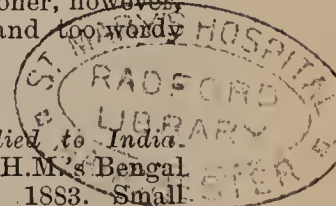 oner, however,
and too wordy
ST MARY'S HOSPITAL
RADFORD
LIBRARY
lied to India.
H.M.'s Bengal
1883. Small